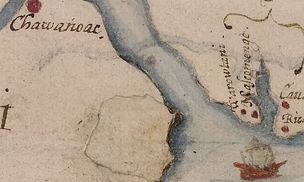 Chawanoac.
Warowtani
Mascomenge
Cau
Ric
I